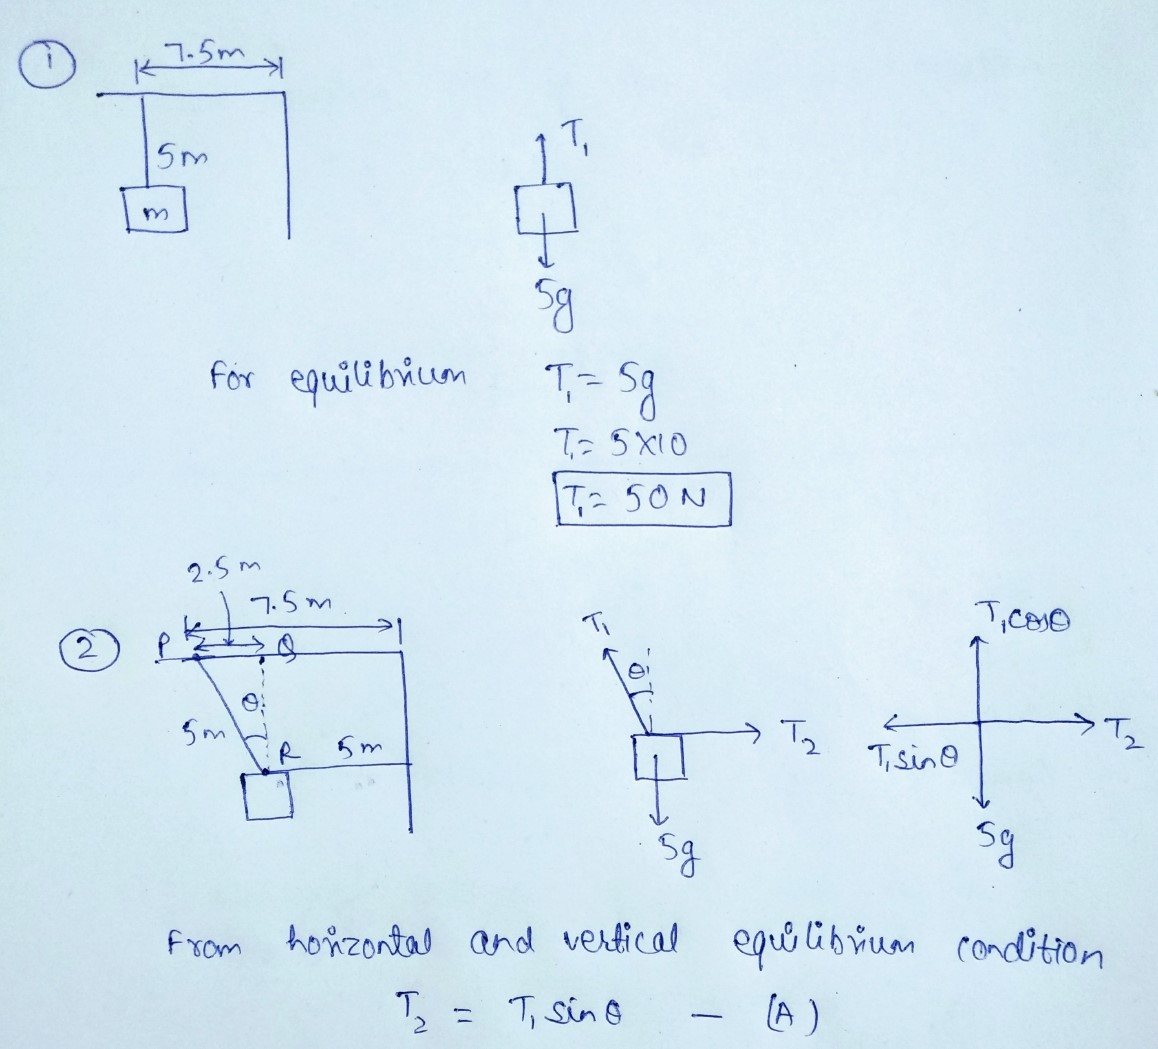 1
7.5m
5m
m
T₁
5g
For equilibrium
T₁ = 5g
T₁ = 5×10
T₁ = 50 N
2.5 m
7.5m
2
P
Q
θ
5m
R
5m
T₁
θ
T₂
5g
T₁cosθ
T₂
T₁sinθ
5g
From horizontal and vertical equilibrium condition
T₂ = T₁ sin θ – (A)